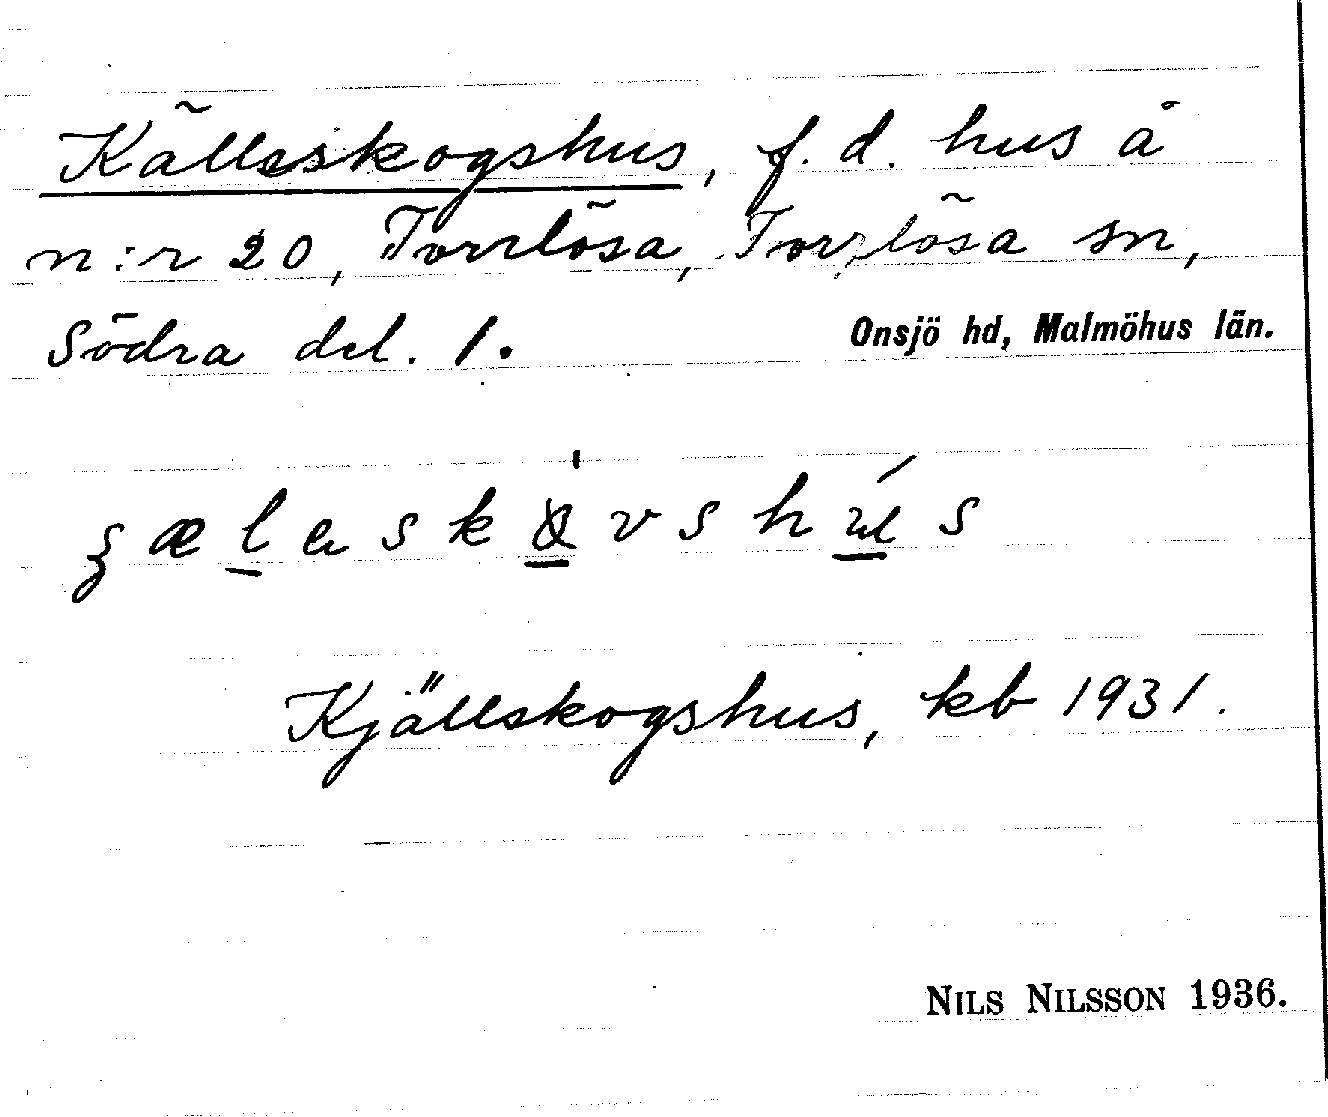 Källeskogshus, f. d. hus å
n:r 20, Torrlösa, Torrlösa sn,
Södra del. 1. Onsjö hd, Malmöhus län.
Kjällskogshus, kb 1931.
NILS NILSSON 1936.